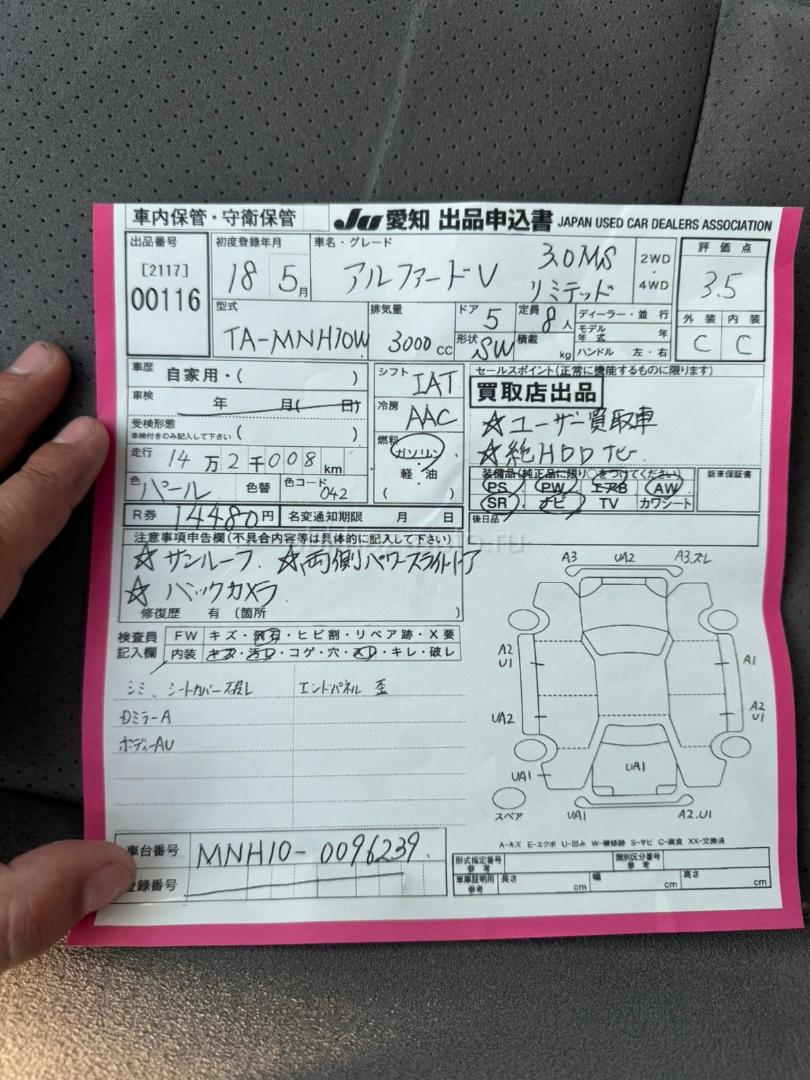 車内保管・守衛保管
JU 愛知 出品申込書 JAPAN USED CAR DEALERS ASSOCIATION
出品番号
[2117]
00116
初度登録年月
18 5月
車名・グレード
アルファードV
3.0MS
リミテッド
2WD
・
4WD
評価点
3.5
外装 内装
C C
型式
TA-MNH10W
排気量
3000cc
ドア
5
定員
8人
形状
SW
積載
kg
ディーラー・並行
モデル年式 年
ハンドル 左・右
車歴 自家用・( )
車検 年 月( 日)
受検形態
車検付きのみ記入して下さい ( )
走行 14万2千008km
色 パール 色替 色コード 042
シフト IAT
冷房 AAC
燃料
ガソリン
軽・油
( )
セールスポイント(正常に機能するものに限ります)
買取店出品
☆ユーザー買取車
☆純HDDナビ
装備品(純正品に限り○をつけてください)
PS PW エアB AW
SR ナビ TV カワシート
新車保証書
後日品
R券 14480円 名変通知期限 月 日
注意事項申告欄(不具合内容等は具体的に記入して下さい)
☆サンルーフ ☆両側パワースライドドア
☆バックカメラ
修復歴 有 (箇所 )
検査員
記入欄
FW キズ・飛石・ヒビ割・リペア跡・X要
内装 キズ・汚レ・コゲ・穴・スレ・キレ・破レ
シミ、シートカバー破レ エンドパネル 歪
Dミラー A
ボディーAU
A3 UA2 A3.ズレ
A2
U1
A1
UA2
A2
U1
UA1
UA1
スペア
UA1
A2.U1
A-キズ E-エクボ U-凹み W-補修跡 S-サビ C-腐食 XX-交換済
車台番号 MNH10-0096239
登録番号
形式指定番号
参考
類別区分番号
参考
車庫証明用
参考
長さ cm 幅 cm 高さ cm